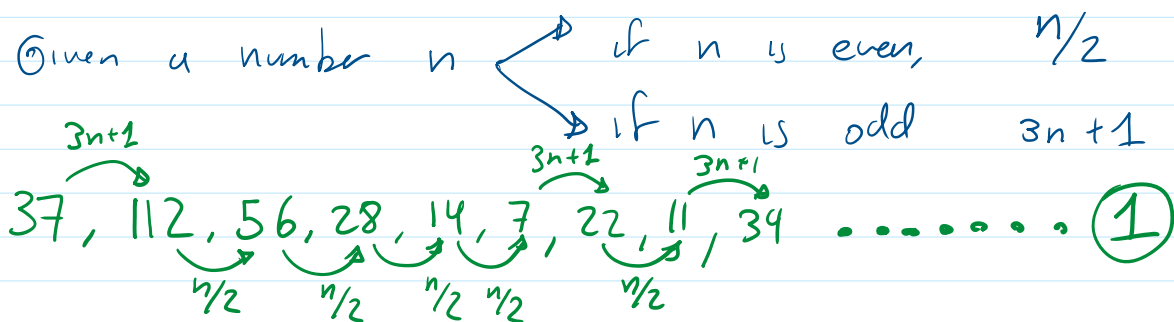 Given a number n if n is even, n/2
if n is odd 3n+1
3n+1 3n+1 3n+1
37, 112, 56, 28, 14, 7, 22, 11, 34 ....... 1
n/2 n/2 n/2 n/2 n/2